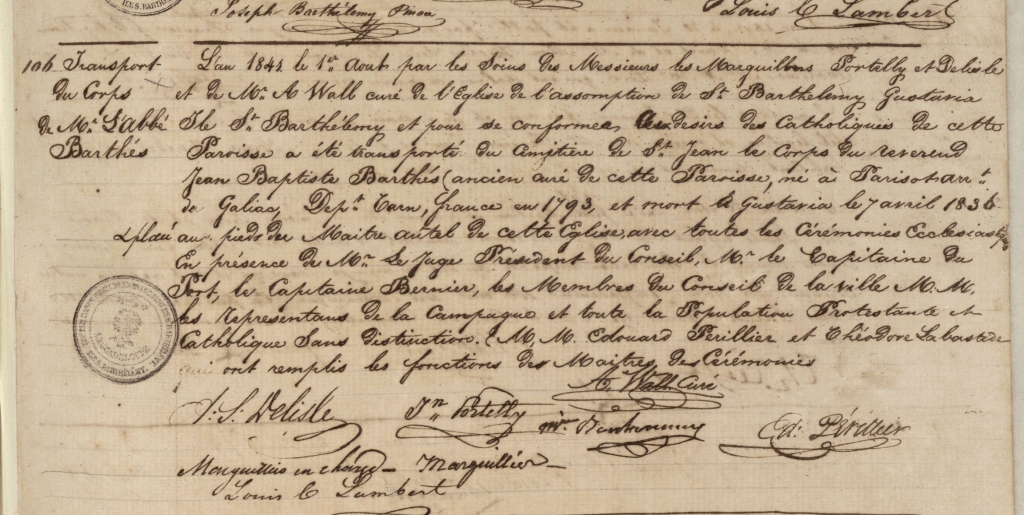 Joseph Barthélemy Pinou
Louis C Lambert
106 Transport
du Corps
de Mr. L'abbé
Barthés
L'an 1841 le 1er Aout par les Soins des Messieurs les Marguilliers Portelly et Delisle
et de Mr. A Wall curé de l'Eglise de l'assomption de St Barthelemy Gustavia
Isle St. Barthélemy et pour se conformer Au desirs des Catholiques de cette
Paroisse a été transporté du cimptière de St Jean le Corps du reverend
Jean Baptiste Barthés (ancien curé de cette Paroisse, né à Parisot arrt.
de Galiac, Dept. Tarn, france en 1793, et mort le Gustavia le 7 avril 1836
au pieds du Maitre autel de cette Eglise, avec toutes les Cérémonies Ecclesiastiques
En présence de Mr. Le Juge Président du Conseil, Mr. le Capitaine du
Port, le Capitaine Bernier, les Membres du Conseil de la ville M. M.
les representans de la Campagne et toute la Population Protestante et
Catholique Sans distinction. (M. M. Edouard Périllier et Théodore Labastide
qui ont remplis les fonctions des Maitres des Cérémonies
A. Wall Curé
Delisle
Jn Portelly
Ed. Périllier
Marguillier en charge
Marguillier
Louis C Lambert